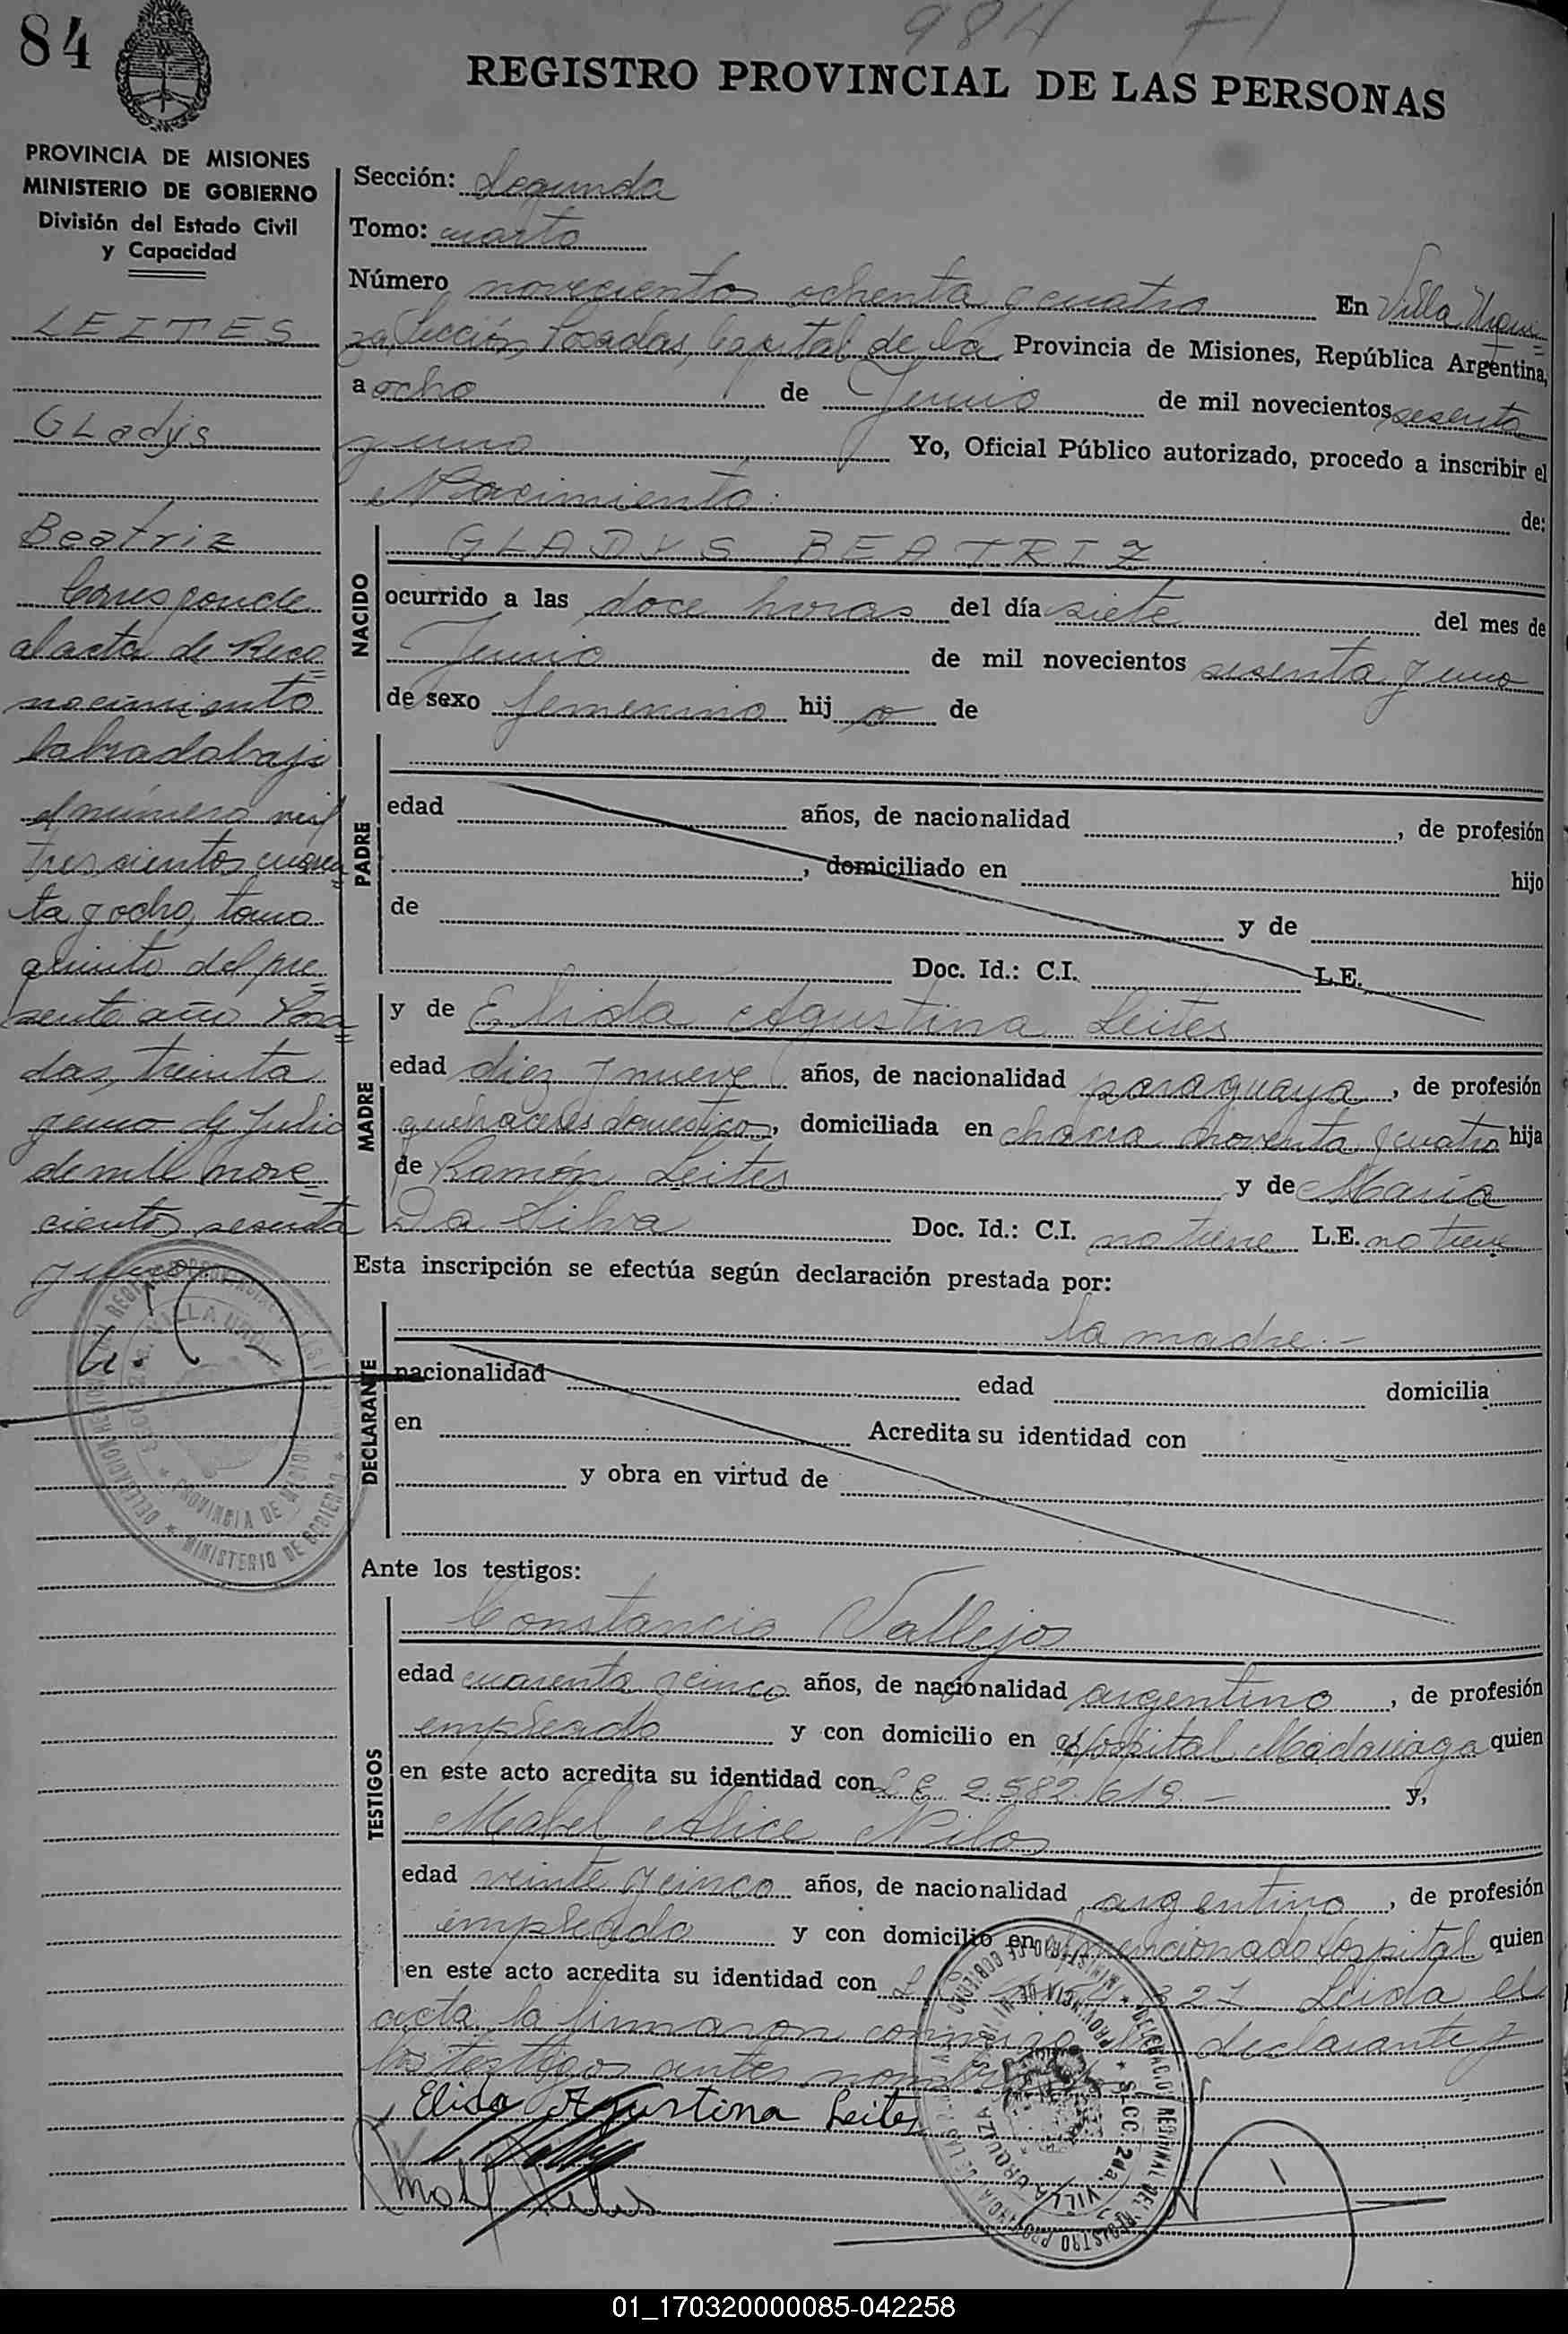 84
984
REGISTRO PROVINCIAL DE LAS PERSONAS
PROVINCIA DE MISIONES
MINISTERIO DE GOBIERNO
División del Estado Civil
y Capacidad
LEITES
Gladys
Beatriz
Corresponde
al acta de Reco=
nocimiento
labrada bajo
el número mil
trescientos cuaren=
ta y ocho, tomo
quinto del pre=
sente año Posa=
das, treinta
y uno de Julio
de mil nove=
cientos sesenta
y uno
Sección: Segunda
Tomo: cuarto
Número novecientos ochenta y cuatro En Villa Urqui=
za, Sección Posadas, Capital de la Provincia de Misiones, República Argentina,
a ocho de Junio de mil novecientos sesenta
y uno Yo, Oficial Público autorizado, procedo a inscribir el
Nacimiento: de:
NACIDO
GLADYS BEATRIZ
ocurrido a las doce horas del día siete del mes de
Junio de mil novecientos sesenta y uno
de sexo femenino hij a de
PADRE
edad años, de nacionalidad , de profesión
, domiciliado en hijo
de y de
Doc. Id.: C.I. L.E.
MADRE
y de Elida Agustina Leites
edad diez y nueve años, de nacionalidad paraguaya, de profesión
quehaceres domestico, domiciliada en chacra noventa y cuatro hija
de Ramón Leites y de María
Da Silva Doc. Id.: C.I. no tiene L.E. no tiene
Esta inscripción se efectúa según declaración prestada por:
DECLARANTE
la madre.-
nacionalidad edad domicilia
en Acredita su identidad con
y obra en virtud de
Ante los testigos:
TESTIGOS
Constancio Vallejos
edad cuarenta y cinco años, de nacionalidad argentino, de profesión
empleado y con domicilio en Hospital Madariaga quien
en este acto acredita su identidad con L.E. 2.582.619.- y,
Mabel Alice Nilos
edad veinte y cinco años, de nacionalidad argentino, de profesión
empleado y con domicilio en mencionado Hospital quien
en este acto acredita su identidad con 327 Leida el
acta la firmaron conmigo declarante y
los testigos antes
Elida Agustina Leites
VILLA URQUIZA
PROVINCIA DE MISIONES
MINISTERIO DE GOBIERNO
MINISTERIO DE GOBIERNO
DELEGACION REGIONAL DEL REGISTRO PROVINCIAL DE LAS
PROVINCIA DE MISIONES
SECC. 2da. VILLA URQUIZA
01_170320000085-042258